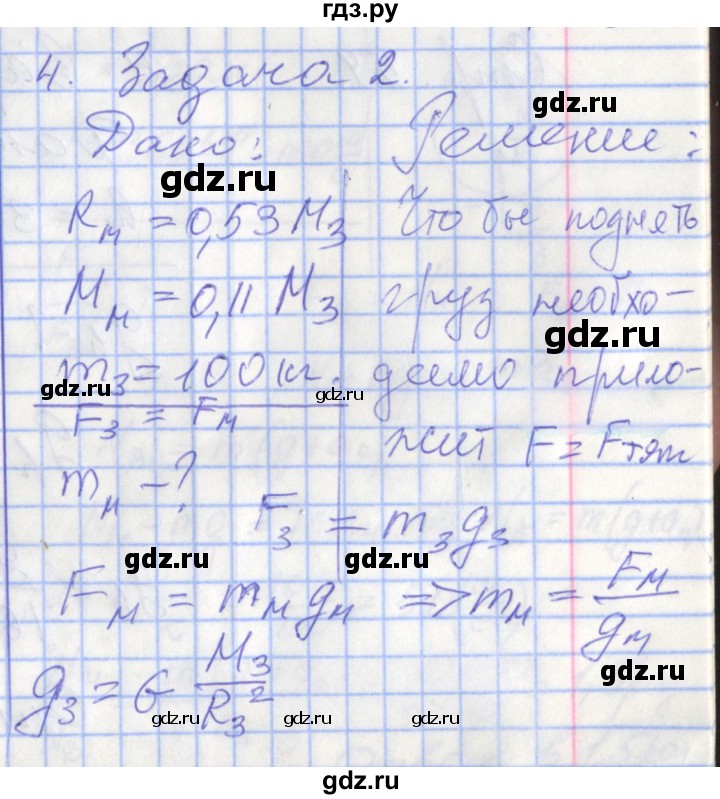 гдз.ру
4. Задача 2.
Дано: Решение:
gdz.ru
gdz.ru
R_м = 0,53 M_з Что бы поднять
M_м = 0,11 M_з груз необхо-
gdz.ru
m_з = 100 кг. димо прило-
gdz.ru gdz.ru
F_з = F_м
жит F = F_тяж
m_м - ?
F_з = m_з g_з
gdz.ru gdz.ru
F_м = m_м g_м => m_м = F_м / g_м
g_з = G M_з / R_з²
gdz.ru gdz.ru gdz.ru
gdz.ru